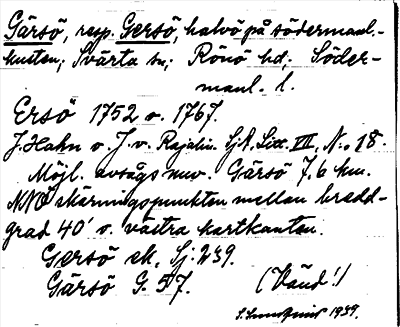 Gärsö, resp. Gersö, halvö på södermanl.-
kusten; Svärta sn; Rönö hd; Söder-
manl. l.
Ersö 1752 o. 1767.
J. Hahn o. J. v. Rajalin. SjK. Litt. VII, N:o 18.
Möjl. avsågs nuv. Gärsö 7,6 km.
NNO skärningspunkten mellan bredd-
grad 40' o. västra kartkanten.
Gersö ek. Sj: 239.
Gärsö G. 57.
(Vänd!)
1939.